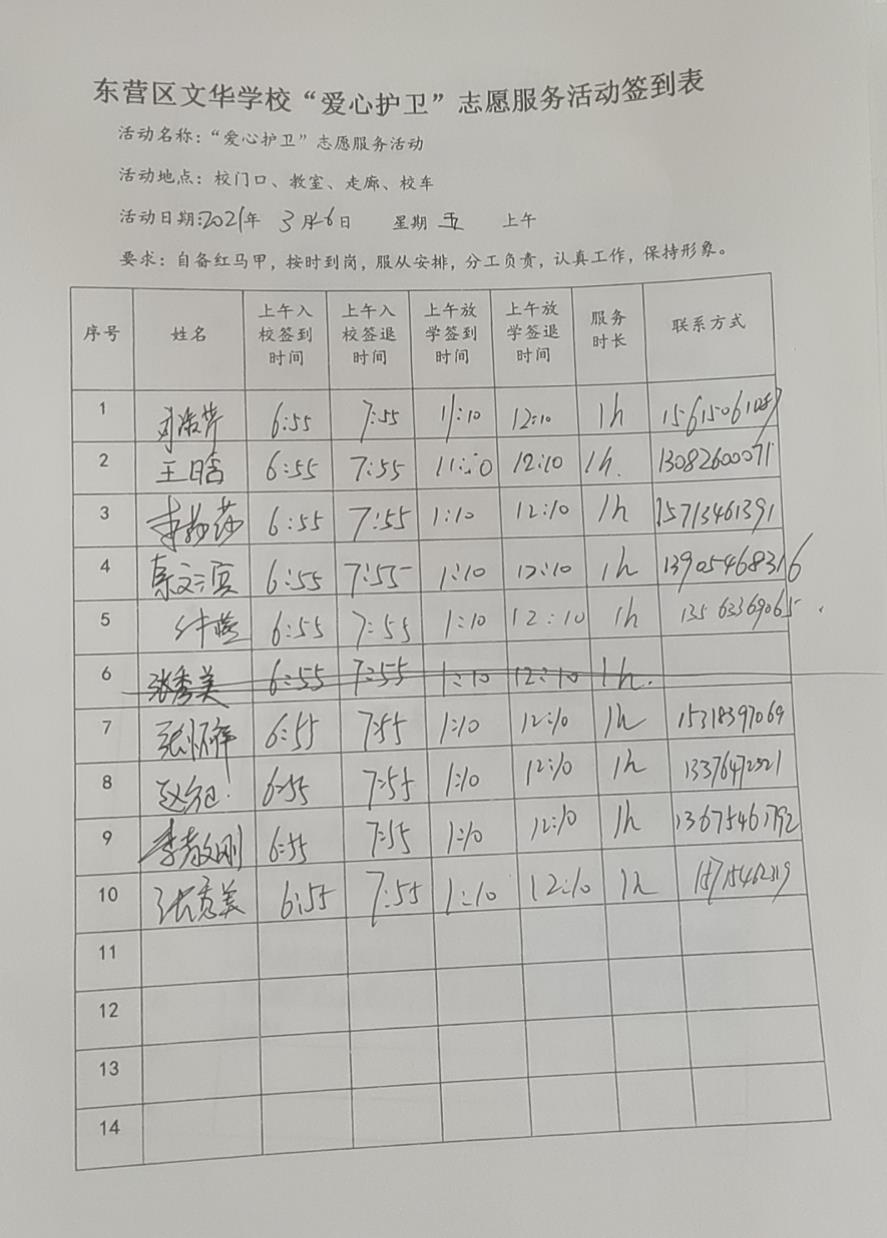 东营区文华学校“爱心护卫”志愿服务活动签到表
活动名称：“爱心护卫”志愿服务活动
活动地点：校门口、教室、走廊、校车
活动日期:2021年 3月26日 星期 五 上午
要求：自备红马甲，按时到岗，服从安排，分工负责，认真工作，保持形象。
序号 姓名 上午入校签到时间 上午入校签退时间 上午放学签到时间 上午放学签退时间 服务时长 联系方式
1 6:55 7:55 11:10 12:10 1h
2 王晗 6:55 7:55 11:10 12:10 1h. 13082600071
3 6:55 7:55 1:10 12:10 1h 15713461391
4 6:55 7:55 1:10 12:10 1h 13905468316
5 6:55 7:55 1:10 12:10 1h 13563369065
6 张秀美 6:55 7:55 1:10 12:10 1h.
7 6:55 7:55 1:10 12:10 1h 15318397069
8 6:55 7:55 1:10 12:10 1h
9 6:55 7:55 1:10 12:10 1h 13675461792
10 张秀美 6:55 7:55 1:10 12:10 1h
11
12
13
14